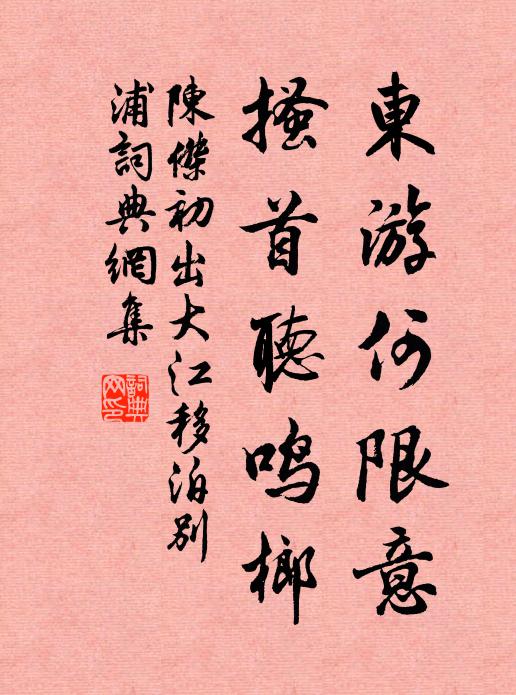 東游何限意
搔首聽鳴榔
陳傑初出大江移泊別
浦詞典網集
詞典網印